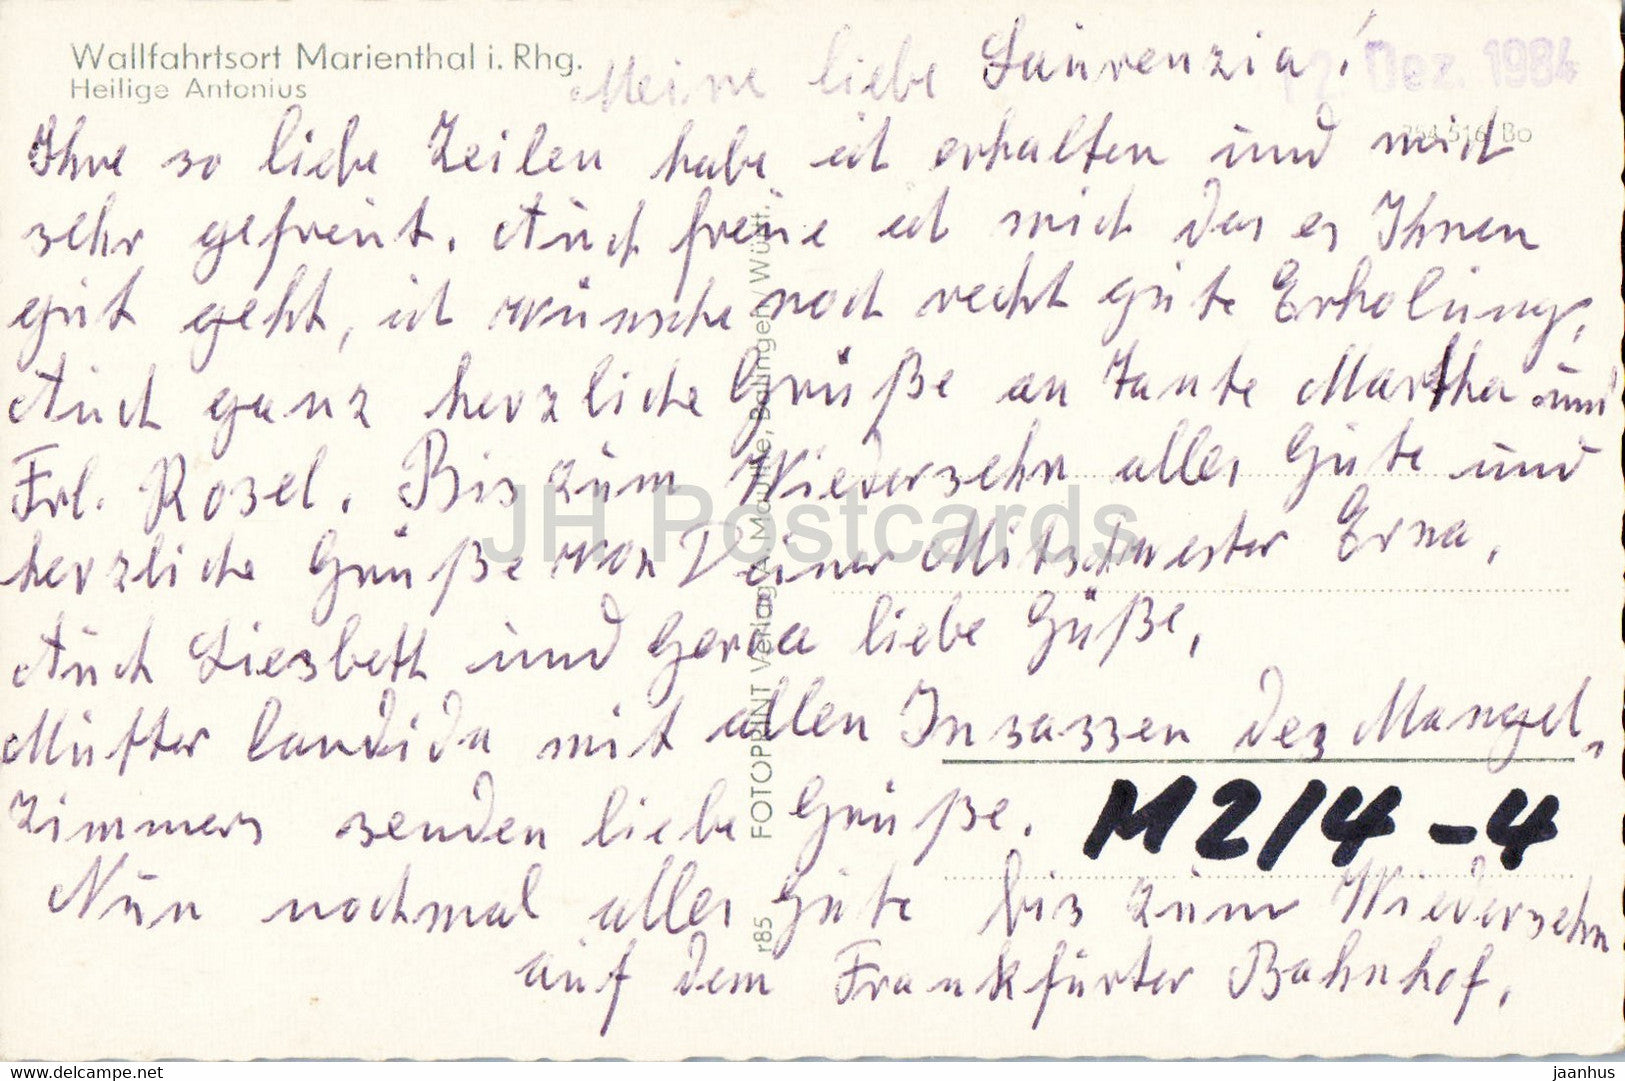 Wallfahrtsort Marienthal i. Rhg.
Heilige Antonius
Meine liebe Laurenzia!
Dez. 1984
Bo
Ihre so liebe Zeilen habe ich erhalten und mich
sehr gefreut. Auch freue ich mich das es Ihnen
gut geht, ich wünsche noch recht gute Erholung,
Auch ganz herzliche Grüße an Tante Martha und
Frl. Rosel. Bis zum Wiedersehn alles Gute und
herzliche Grüße von Deiner Mitschwester Erna,
Auch Liesbett und Gerda liebe Güße,
Mutter Candida mit allen Insassen des Mangel-
zimmers senden liebe Grüße.
M2/4-4
Nun nochmal alles Gute bis zum Wiedersehn
auf dem Frankfurter Bahnhof.
r85 FOTOPRINT Verlag A. Mauthe, Balingen/Württ.
JH Postcards
www.delcampe.net
jaanhus